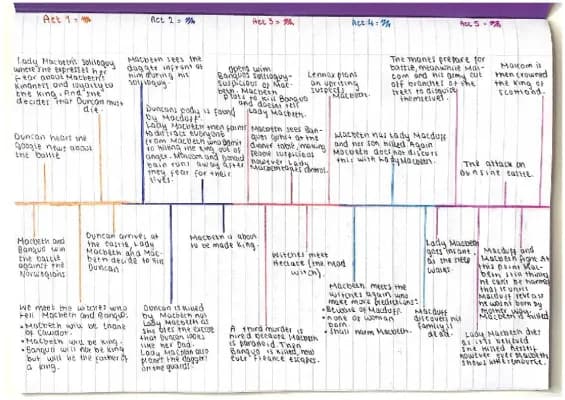 Act 1 =
Act 2 =
Act 3 =
Act 4 =
Act 5 =
Lady Macbeth's soliloquy
where she expresses her
fear about Macbeth's
kindness and loyalty to
the king. And she
decides that Duncan must
die.
Duncan hears the
good news about
the battle
Macbeth sees the
dagger infront of
him during his
soliloquy
Duncans body is found
by Macduff.
Lady Macbeth then faints
to distract everyone
from Macbeth who
to killing the out of
anger. Malcom and Donal
bain run away after
they fear for their
lives.
opens with
Banquos soliloquy-
suspicious of Mac-
beth. Macbeth
plots to kill Banquo
and doesn't tell
Lady Macbeth.
Macbeth sees Ban-
quos ghost at the
dinner table, making
people suspicious
however Lady
Macbeth takes control.
Lennox plans
an uprising
suspects
Macbeth.
Macbeth has Lady Macduff
and her son killed. Again
Macbeth does not discuss
this with Lady Macbeth.
The thanes prepare for
battle, meanwhile Mal-
com and his army cut
off branches of the
trees to disguise
themselves.
Malcom is
then crowned
the king of
scotland.
The attack on
Dunsinane castle.
Macbeth and
Banquo win
the battle
against the
Norwegians
Duncan arrives at
the castle, Lady
Macbeth and Mac-
beth decide to kill
Duncan.
Macbeth is about
to be made king.
Witches meet
Heccate (the head
witch).
Macbeth meets the
witches again who
make more predictions:
• Beware of Macduff
• none of woman
born
• shall harm Macbeth.
Lady Macbeth
goes insane,
as she sleep
walks.
Macduff
discovers his
family is
dead.
Macduff and
Macbeth fight. At
this point Mac-
beth still thinks
he cant be harmed
that is until
Macduff reveals
he wasnt born by
mother way.
Macbeth is killed
Lady Macbeth dies
as its believed
she killed herself
however even Macbeth
shows little remorse.
We meet the witches who
tell Macbeth and Banquo:
• Macbeth will be thane
of Cawdor.
• Macbeth will be king.
• Banquo will not be king
but will be the father of
a king.
Duncan is killed
by Macbeth not
Lady Macbeth as
she uses the excuse
that Duncan looks
like her Dad.
Lady Macbeth also
the dagger
on the guards.
A third murder is
hired because Macbeth
is paranoid. Then
Banquo is killed, how
ever Fleance escapes.